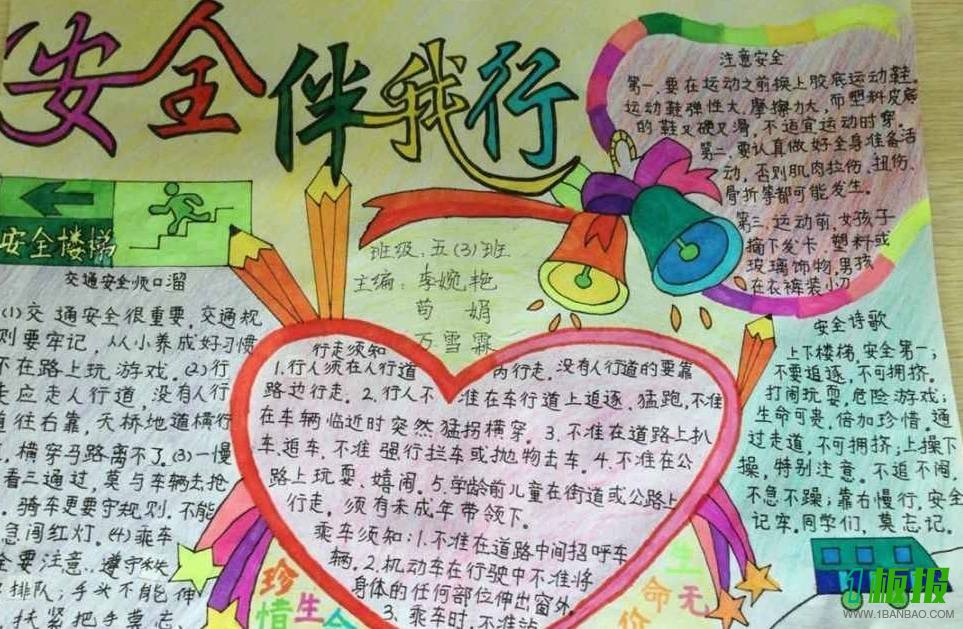 安全伴我行
安全楼梯
交通安全顺口溜
(1)交通安全很重要,交通规
则要牢记,从小养成好习惯
不在路上玩游戏。(2)行
走应走人行道,没有人行
道往右靠,天桥地道横行
,横穿马路离不了。(3)一慢
看三通过,莫与车辆去抢
骑车更要守规则,不能
急闯红灯。(4)乘车
全要注意,遵守秩
排队;手头不能伸
扶紧把手莫忘
班级:五(3)班
主编:李婉艳
荀娟
万雪霖
行走须知
1.行人须在人行道内行走,没有人行道的要靠
路边行走。2.行人不准在车行道上追逐、猛跑,不准
在车辆临近时突然猛拐横穿。3.不准在道路上扒
车、追车,不准强行拦车或抛物击车。4.不准在公
路上玩耍、嬉闹。5.学龄前儿童在街道或公路上
行走,须有未成年带领下。
乘车须知:1.不准在道路中间招呼车
辆。2.机动车在行驶中不准将
身体的任何部位伸出窗外,
3.乘车时,不准站
珍惜生命
生命无价
注意安全
第一,要在运动之前换上胶底运动鞋。
运动鞋弹性大,摩擦力大;而塑料皮底
的鞋又硬又滑,不适宜运动时穿。
第二,要认真做好全身准备活
动,否则肌肉拉伤、扭伤、
骨折等都可能发生。
第三,运动前,女孩子
摘下发卡,塑料或
玻璃饰物,男孩
在衣裤装小刀
安全诗歌
上下楼梯,安全第一;
不要追逐,不可拥挤。
打闹玩耍,危险游戏;
生命可贵,倍加珍惜,通
过走道,不可拥挤,上操下
操,特别注意。不追不闹,
不急不躁;靠右慢行,安全
记牢。同学们,莫忘记。
1板报
WWW.1BANBAO.COM